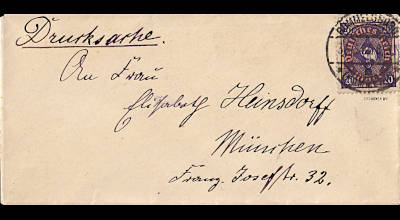 Drucksache.
An Frau
Elisabeth Heinsdorff
München
Franz Josefstr. 32.